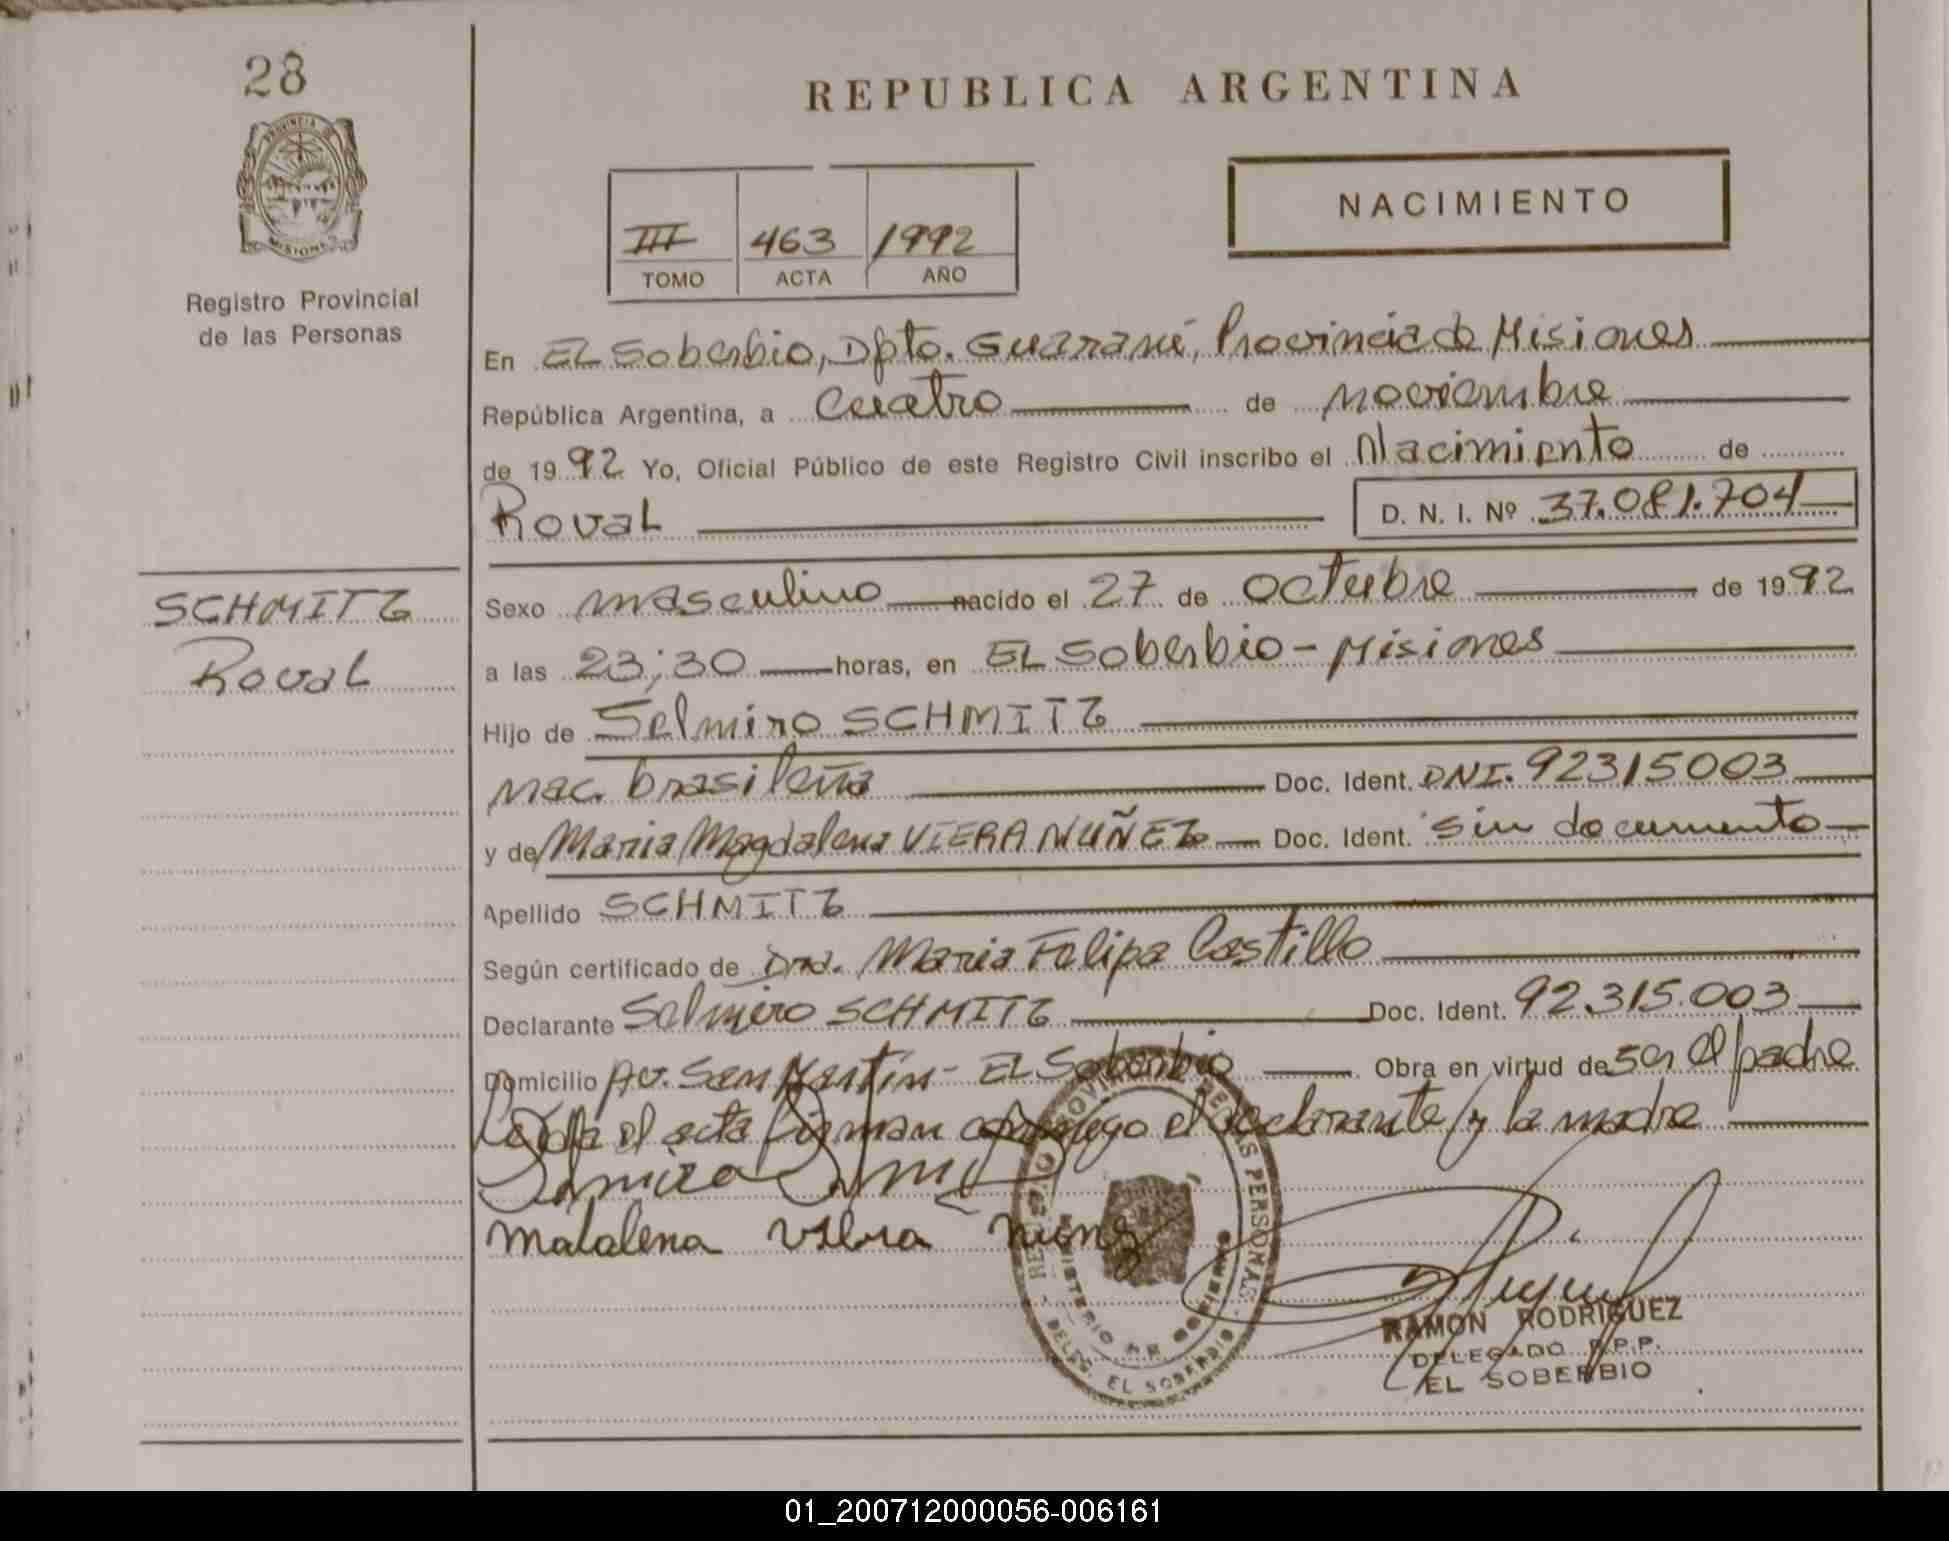 28
PROVINCIA DE
MISIONES
Registro Provincial
de las Personas
SCHMITZ
Roval
REPUBLICA ARGENTINA
NACIMIENTO
III 463 1992
TOMO ACTA AÑO
En EL Soberbio, Dpto. Guaraní, Provincia de Misiones
República Argentina, a cuatro de noviembre
de 1992 Yo, Oficial Público de este Registro Civil inscribo el Nacimiento de
Roval D. N. I. Nº 37.081.704
Sexo masculino nacido el 27 de octubre de 1992
a las 23;30 horas, en EL Soberbio - Misiones
Hijo de Selmiro SCHMITZ
nac. brasileña Doc. Ident. DNI. 92315003
y de Maria Magdalena VIERA NUÑEZ Doc. Ident. sin documento
Apellido SCHMITZ
Según certificado de Dra. Maria Felipa Castillo
Declarante Selmiro SCHMITZ Doc. Ident. 92.315.003
Domicilio Av. San Martín - EL Soberbio Obra en virtud de ser el padre
Leída el acta firman conmigo el declarante y la madre
Malalena
REGISTRO PROVINCIAL DE LAS PERSONAS
MINISTERIO DE GOBIERNO
DELEG. EL SOBERBIO
RAMON RODRIGUEZ
DELEGADO R.P.P.
EL SOBERBIO
01_200712000056-006161